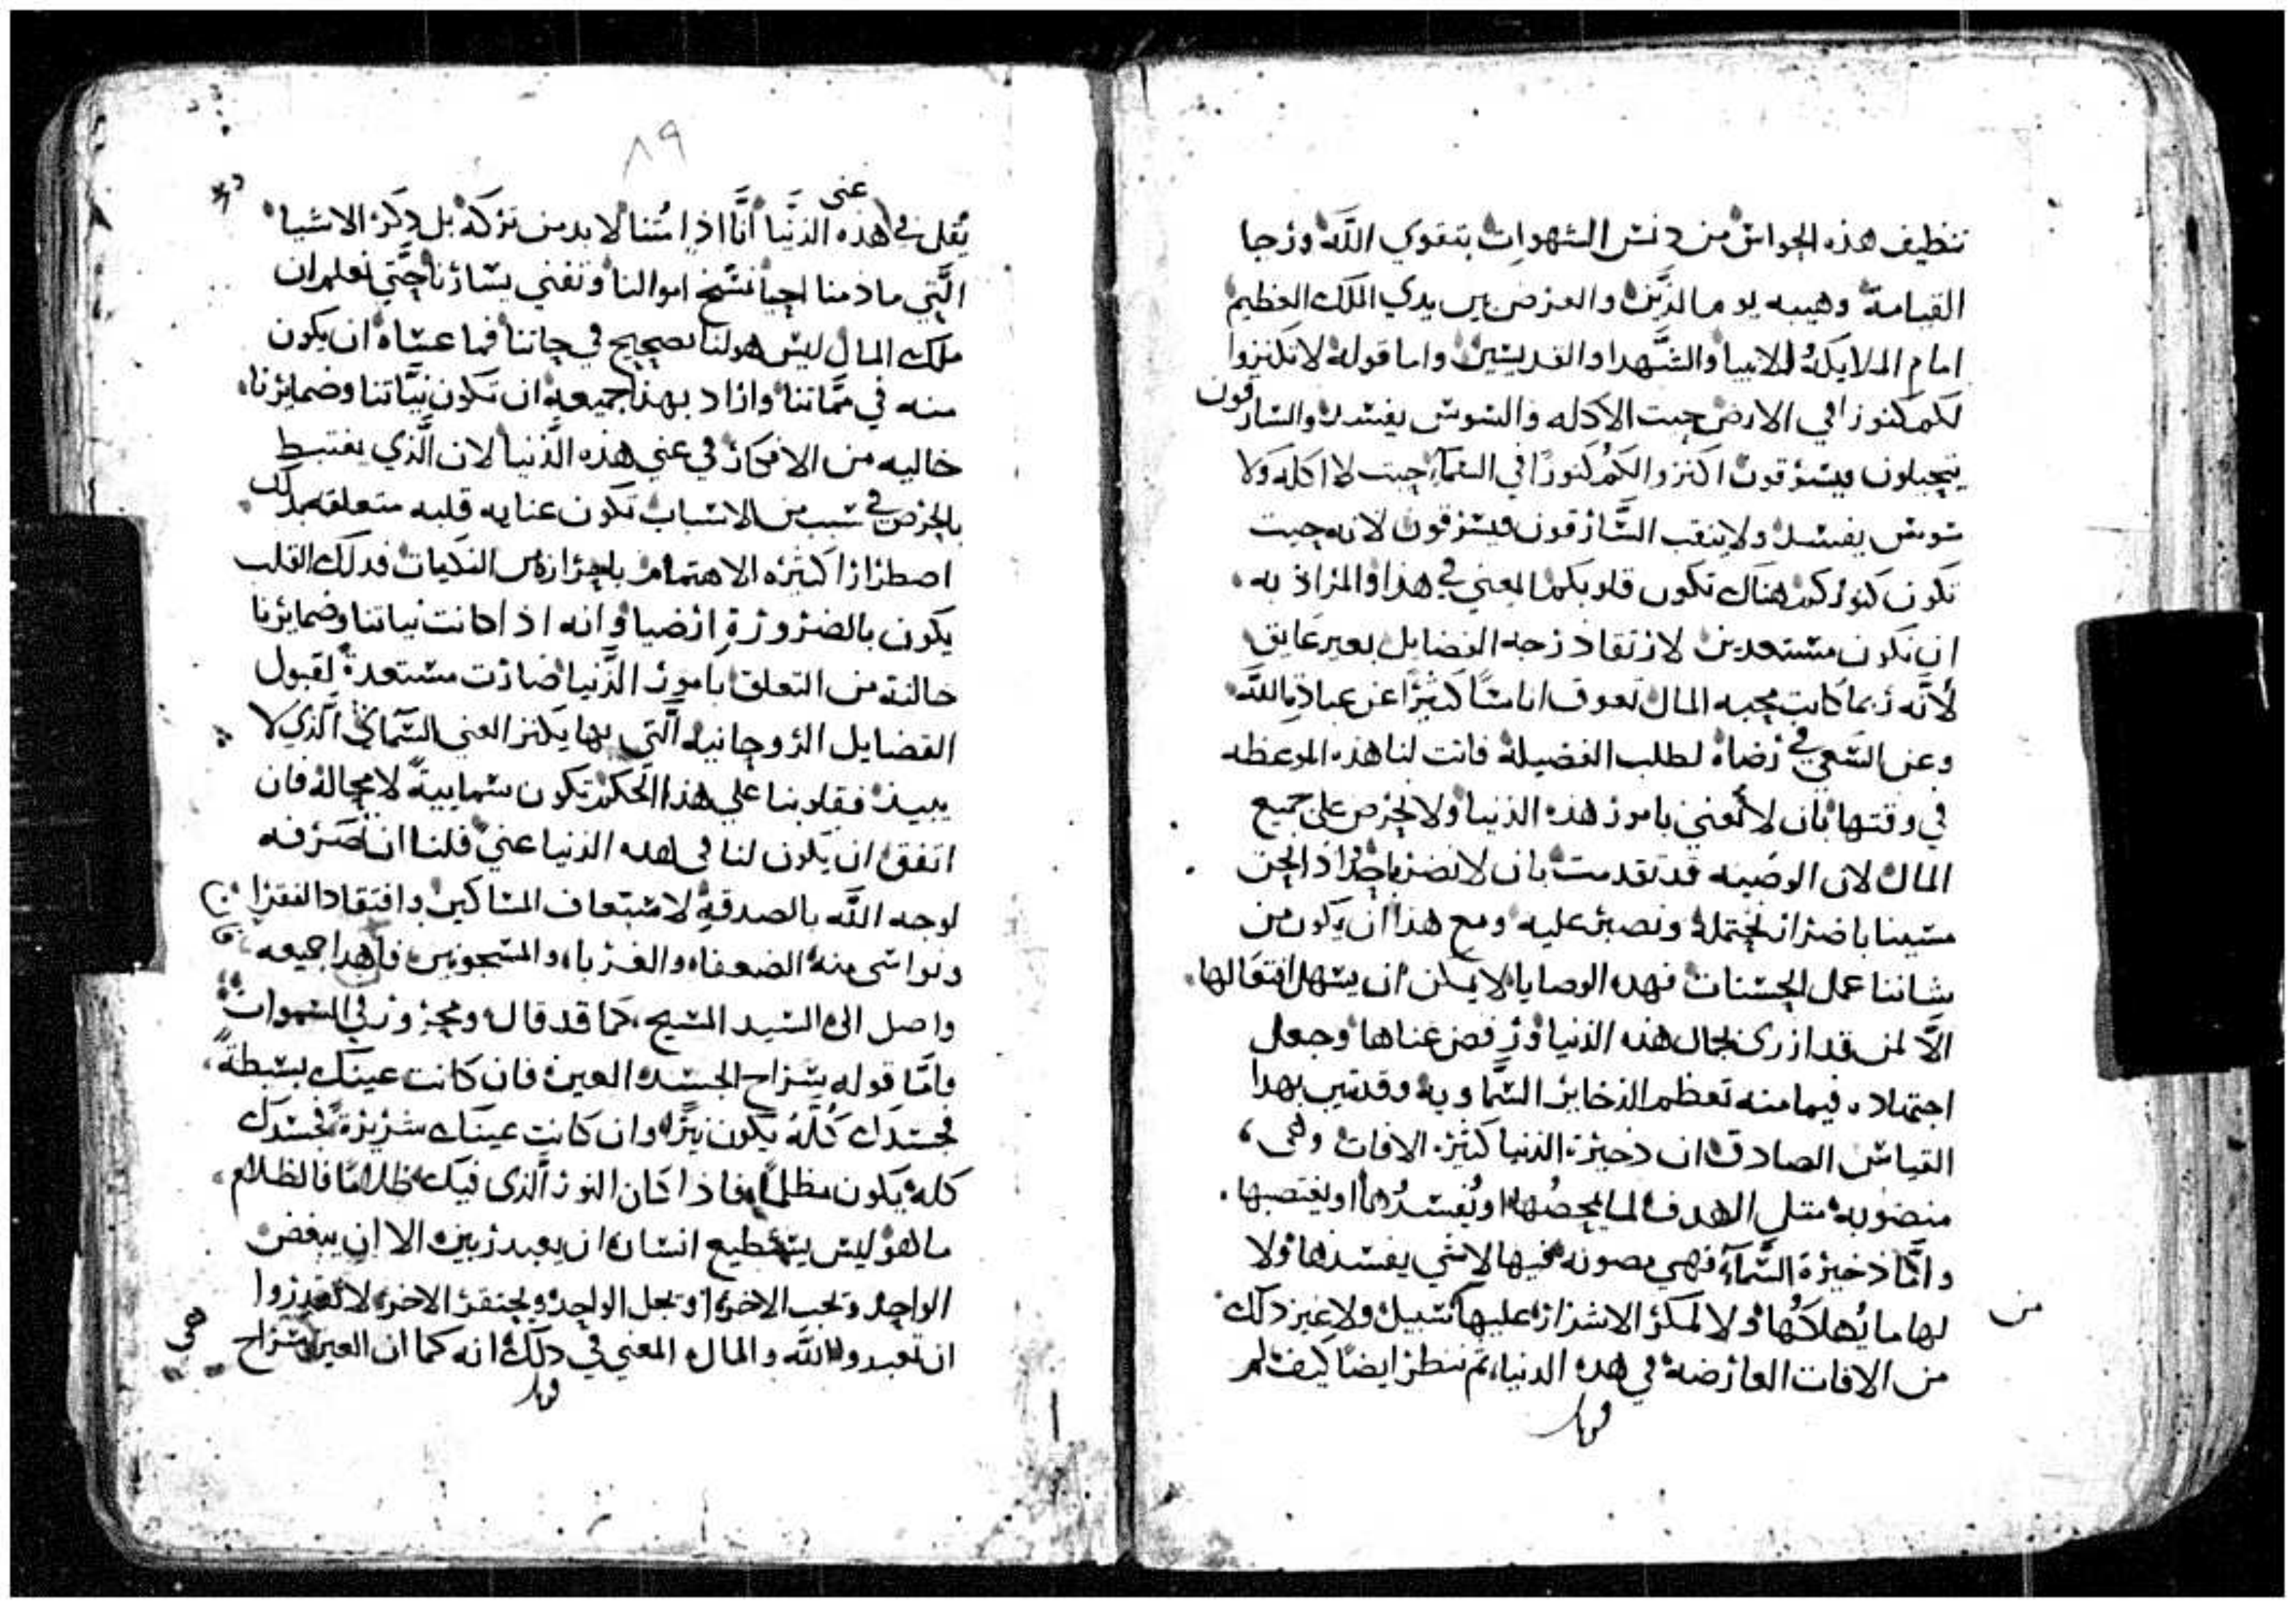 تنظيف هذه الحواس من دنس الشهوات بتقوي الله ورجا
القيامة وهيبه يوم الدين والعرض بين يدي الملك العظيم
امام الملايكة والانبيا والشهدا والقديسين واما قوله لا تكنزوا
لكم كنوزا في الارض حيت الاكله والسوس يفسد والسارقون
يتحيلون ويسرقون اكنزوا لكم كنوزا في السمآء حيت لا اكله ولا
سوس يفسد ولا ينقب السارقون فيسرقون لانه حيت
تكون كنوزكم هناك تكون قلوبكم المعني في هذا والمراد به
ان نكون مستعدين لارتقا درجه الفضايل بغير عايق
لأنه ربما كانت محبه المال تعوق اناسا كثيرا عن عبادة الله
وعن السعي في رضاه لطلب الفضيلة فاتت لنا هذه الموعظه
في وقتها بان لا نعني بامور هذه الدنيا ولا نحرص علي جميع
المال لان الوصيه قد تقدمت بان لا نضر باحد واذ الحق
مسينا باضرار نحتمله ونصبر عليه ومع هذا ان يكون من
شاننا عمل الحسنات فهده الوصايا لا يمكن ان يسهل افتعالها
الا لمن قد ازرى بجمال هذه الدنيا ورفض غناها وجعل
اجتهاده فيما منه تعظم الذخاير السماويه وقد تبين بهدا
القياس الصادق ان ذخيرة الدنيا كثيرة الافات وهى
منصوبه متل الهدف لما يمحصها او يفسدها او يغتصبها
وامّا ذخيرة السّمآء فهي مصونه فيها لا شي يفسدها ولا
لها ما يهلكها ولا لمكر الاشرار عليها سبيل ولا غير دلك من
من الافات العارضة في هده الدنيا تم ننظر ايضا كيف لم
قوبل
٨٩
يقل في غنى هذه الدنيا أنّا اذا متنا لا بد من تركه بل دكر الاشيا
الّتي ما دمنا احيا تنسخ اموالنا وتفني يسارنا حتى نعلم ان
ملك المال ليس هو لنا بصحيح في حياتنا فما عساه ان يكون
منه في مماتنا واراد بهذا جميعه ان تكون نيّاتنا وضمايرنا
خاليه من الافكار في غني هذه الدنيا لان الّذي يغتبط
بالحرص في سبب من الاسباب تكون عنايه قلبه متعلقه بدلك
اصطرارا كثيره الاهتمام باحرازه من النكبات فدلك القلب
يكون بالضرورة ارضيا وانه اذا كانت نياتنا وضمايرنا
خالية من التعلق بامور الدنيا صارت مستعدة لقبول
الفضايل الروحانيه الّتي بها يكنز الغني السّماي الّذي لا
يبيد فقلوبنا علي هذا الحكم تكون سماييةً لا محاله فان
اتفق ان يكون لنا في هده الدنيا غني فلنا ان نصرفه
لوجه الله بالصدقة لاستعاف المساكين وافتقاد الفقرا
ونواسى منه الضعفاء والغرباء والمسجونين فان هدا جميعه
واصل الى السيد المسيح كما قد قال ومحروز في السموات
فامّا قوله سراج الجسد العين فان كانت عينك بسيطة
فجسدك كلّه يكون نيّرا وان كانت عينك شريرة فجسدك
كله يكون مظلمًا فاذا كان النور الّذى فيك ظلامًا فالظلام
ما هو ليس يستطيع انسان ان يعبد ربين الا ان يبغض
الواحد ويحب الاخر او يجل الواحد ويحتقر الاخر لا تقدروا
ان تعبدوا الله والمال المعني في دلك انه كما ان العين سراج
هي
قوبل